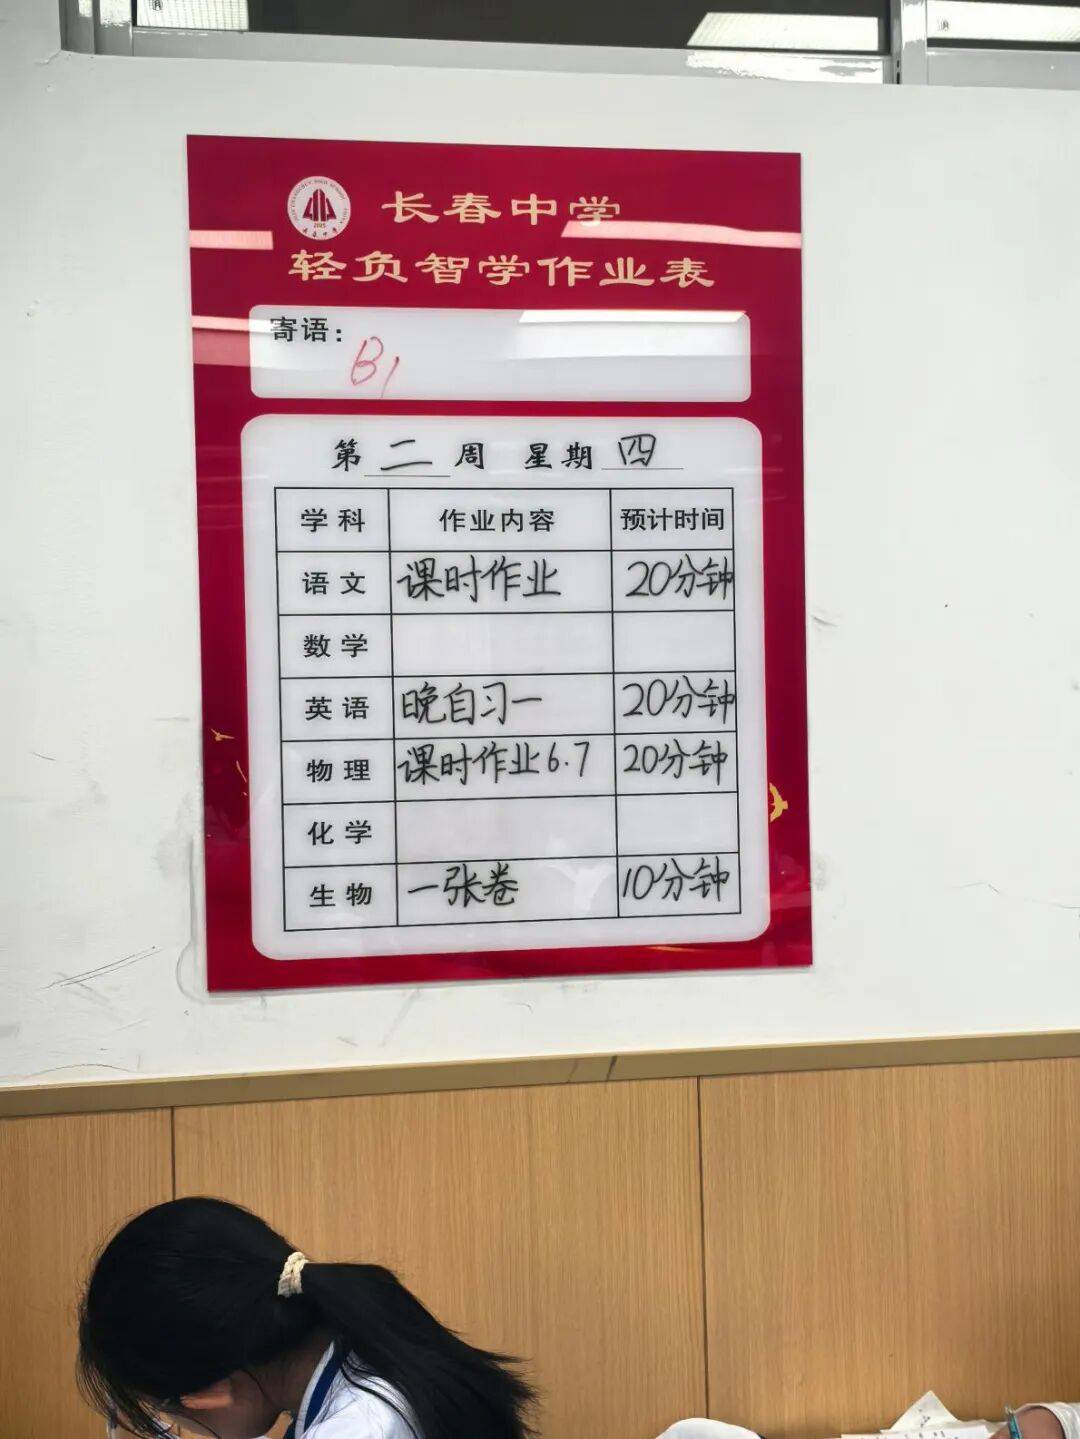 长春中学
轻负智学作业表
寄语：
B1
第二周 星期四
学科 作业内容 预计时间
语文 课时作业 20分钟
数学
英语 晚自习一 20分钟
物理 课时作业6.7 20分钟
化学
生物 一张卷 10分钟